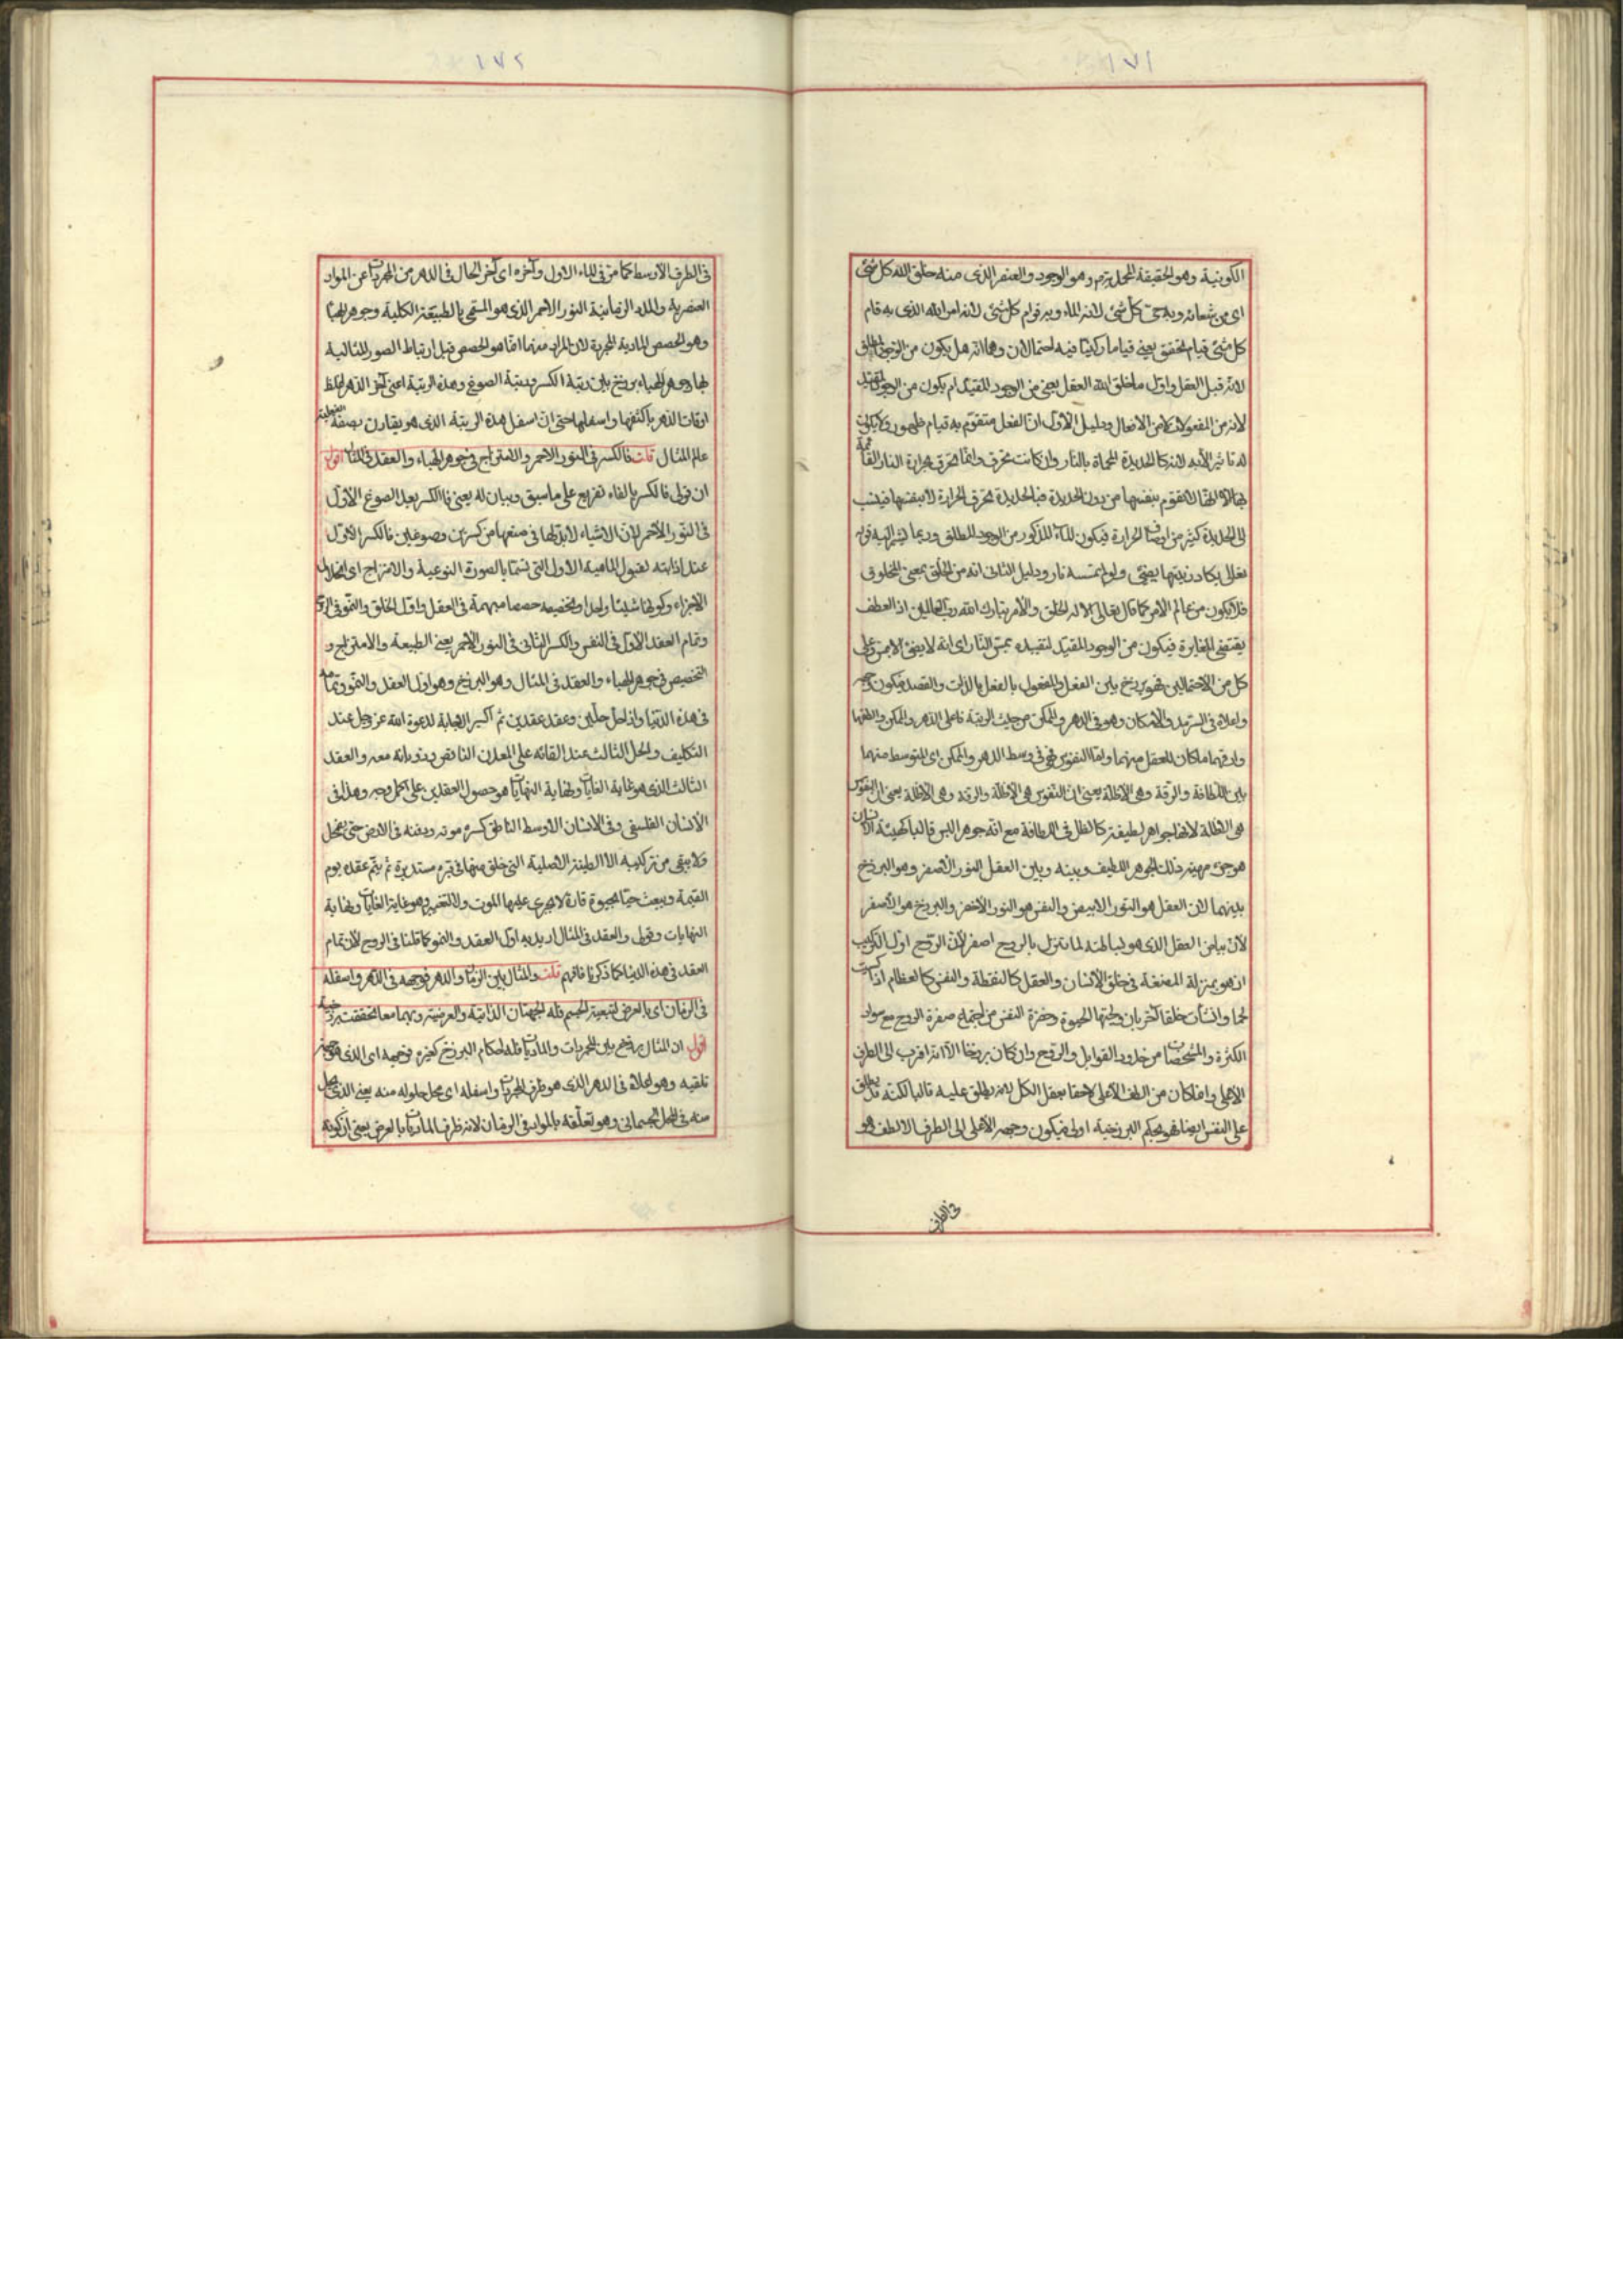 ١٧١
الكونية وهو الحقيقة المحمدية وهو الوجود والعنصر الذى منه خلق الله كل شئ
اى من شعاعه وبه حى كل شئ لانه الماء وبه قوام كل شئ لانه امر الله الذى به قام
كل شئ قيام تحقق يعنى قياما ركنيا فيه احتمالان وهما انه هل يكون من الوجود المطلق
لانه قبل العقل واول ما خلق الله العقل يعنى من الوجود المقيد ام يكون من الوجود المقيد
لانه من المفعولات لا من الافعال ودليل الاول ان الفعل متقوم به قيام ظهور ولا يكون
له تاثير الا به لانه كالحديدة المحماة بالنار وان كانت تحرق وانما تحرق بحرارة النار القائمة
بها الا انها لا تتقوم بنفسها من دون الحديدة فبالحديدة تحرق الحرارة لا بنفسها فينسب
الى الحديدة كثير من اوصاف الحرارة فيكون الماء المذكور من الوجود المطلق وربما يشير اليه قوله
تعالى يكاد زيتها يضئ ولو لم تمسسه نار ودليل الثانى انه من الخلق بمعنى المخلوق
فلا يكون من عالم الامر كما قال تعالى الا له الخلق والامر تبارك الله رب العالمين اذ العطف
يقتضى المغايرة فيكون من الوجود المقيد لتقييده بمس النار اى انه لا يضئ الا بمس وعلى
كل من الاحتمالين فهو برزخ بين الفعل والمفعول بالفعل بالذات والقصد فيكون وجهه
واعلاه فى السرمد والامكان وهو فى الدهر والممكن من حيث الرتبة فاعلى الدهر والممكن والطفها
وادقهما ما كان للعقل منهما واما النفوس فهى فى وسط الدهر والممكن اى المتوسط منهما
بين اللطافة والرقة وهى الاظلة يعنى ان النفوس هى الاظلة والرقة وهى الاظلة يعنى ان النفوس
هى الاظلة لانها جواهر لطيفة كالظل فى اللطافة مع انه جوهر البس قالبا كهيئة الانسان
هو جزء مهيته ذلك الجوهر اللطيف وبينه وبين العقل النور الاصفر وهو البرزخ
بينهما لان العقل هو النور الابيض والنفس هو النور الاخضر والبرزخ هو الاصفر
لان بياض العقل الذى هو لبساطته لما تنزل بالروح اصفر لان الروح اول التركيب
اذ هو بمنزلة المضغة فى خلق الانسان والعقل كالنطفة والنفس كالعظام اذا كسيت
لحما وانشأت خلقا آخر بان ولجتها الحيوة وخضرة النفس من اجتماع صفرة الروح مع سواد
الكثرة والمشخصات من حدود القوابل والروح وان كان برزخا الا انه اقرب الى الطرف
الاعلى وان كان من الطف الاعلى لاحقا بعقل الكل لانه يطلق عليه غالبا لكنه قد يطلق
على النفس ايضا فهو بحكم البرزخية اولى فيكون وجهه الاعلى الى الطرف الالطف وهو
فى الطرف
١٧٢
فى الطرف الاوسط كما مر فى الماء الاول وآخره اى آخر الحال فى الدهر من المجردات عن المواد
العنصرية والمدد الزمانية النور الاحمر الذى هو المسمى بالطبيعة الكلية وجوهر الهباء
وهو الحصص المادية المجردة لان المراد منهما انما هو الحصص قبل ارتباط الصور المثالية
بها وجوهر الهباء برزخ بين رتبة الكسر ورتبة الصوغ وهذه الرتبة اعنى آخر الدهر اغلظ
اوقات الدهر واكثفها واسفلها حتى ان اسفل هذه الرتبة الذى هو يقارن بصفته الفعلية
عالم المثال قلت فالكسر فى النور الاحمر والامتزاج فى جوهر الهباء والعقد فى المثال اقول
ان قولى فالكسر بالفاء تفريع على ما سبق وبيان له يعنى فالكسر بعد الصوغ الاول
فى النور الاحمر لان الاشياء لا بد لها فى صنعها من كسرين وصوغين فالكسر الاول
عند اذابته لقبول الماهية الاولى التى تسمى بالصورة النوعية والامتزاج اى انحلال
الاجزاء وكونها شيئا واحدا وتخصيصه حصصا مبهمة فى العقل واول الخلق والنمو فى الروح
وتمام العقد الاول فى النفس والكسر الثانى فى النور الاحمر يعنى الطبيعة والامتزاج و
التخصيص فى جوهر الهباء والعقد فى المثال وهو البرزخ وهو اول العقد والنمو وتمامه
فى هذه الدنيا واذا حل حلين وعقد عقدين تم اكسير الاجابة لدعوة الله عز وجل عند
التكليف والحل الثالث عند القائه على المعدن الناقص وذوبانه معه والعقد
الثالث الذى هو غاية الغايات ونهاية النهايات هو حصول العقدين على اكمل وجه وهذا فى
الانسان الفلسفى وفى الانسان الاوسط الناطق كسره موته ودفنه فى الارض حتى ينحل
ولا يبقى من تركيبه الا الطينة الاصلية التى خلق منها فى قبره مستديرة ثم يتم عقده يوم
القيمة ويبعث حيا بحيوة قارة لا يجرى عليها الموت ولا التغيير وهو غاية الغايات ونهاية
النهايات وقولى والعقد فى المثال اريد به اول العقد والنمو كما قلنا فى الروح لان تمام
العقد فى هذه الدنيا كما ذكرنا فافهم قلت والمثال بين الزمان والدهر فوجهه فى الدهر واسفله
فى الزمان اى بالعرض لتبعية الجسم فله الجهتان الذاتية والعرضية وبهما معا تحققت برزخيته
اقول ان المثال برزخ بين المجردات والماديات فله احكام البرزخ كغيره فوجهه اى الذى هو جهة
تلقيه وهو اعلاه فى الدهر الذى هو ظرف المجردات واسفله اى محل حلوله منه يعنى الذى يحل
منه فى المحل الجسمانى وهو تعلقه بالمواد فى الزمان لانه ظرف الماديات بالعرض يعنى ان كونه